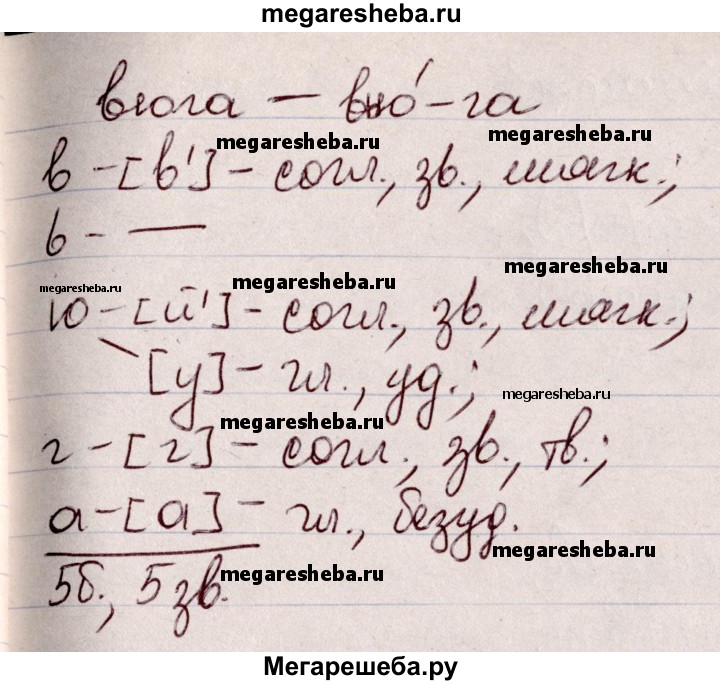 megaresheba.ru
вьюга — вью́-га
megaresheba.ru megaresheba.ru
в - [в'] - согл., зв., мягк.;
ь - —
megaresheba.ru megaresheba.ru megaresheba.ru
ю - [й'] - согл., зв., мягк.;
\ [у] - гл., уд.;
megaresheba.ru
megaresheba.ru
г - [г] - согл., зв., тв.;
а - [а] - гл., безуд.
megaresheba.ru
5б., 5 зв.
megaresheba.ru
Мегарешеба.ру